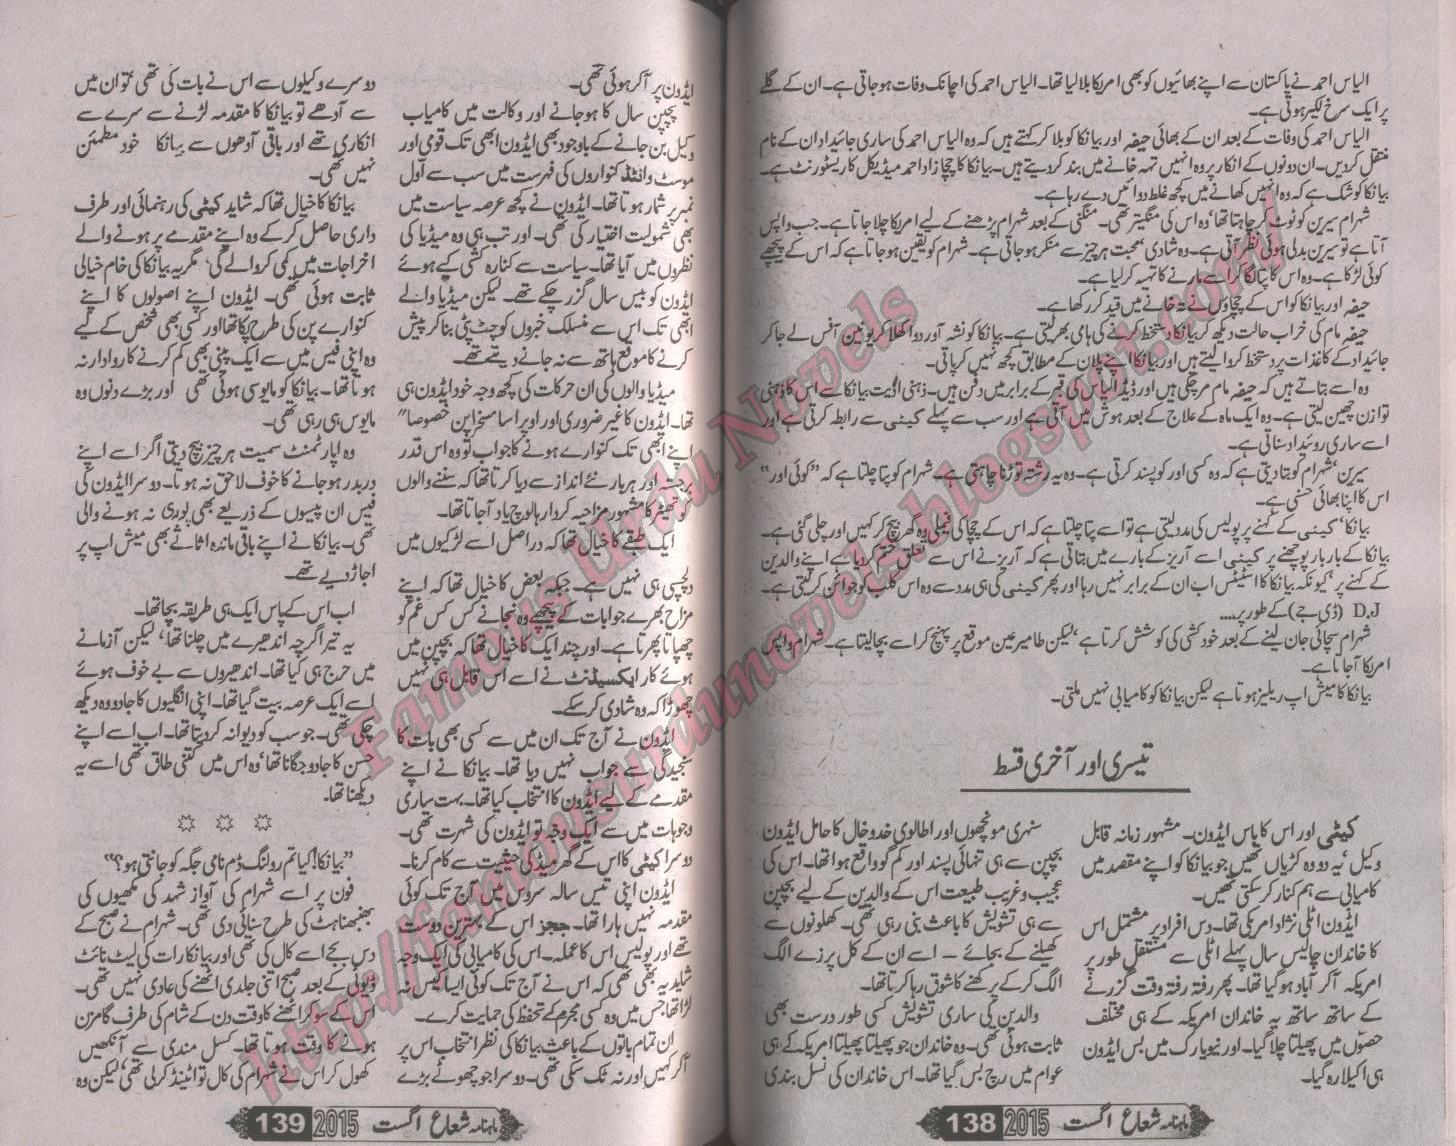 الیاس احمد نے پاکستان سے اپنے بھائیوں کو بھی امریکا بلا لیا تھا۔ الیاس احمد کی اچانک وفات ہو جاتی ہے۔ ان کے گلے
پر ایک سرخ لکیر ہوتی ہے۔
الیاس احمد کی وفات کے بعد ان کے بھائی حیفہ اور بیانکا کو بلا کر کہتے ہیں کہ وہ الیاس احمد کی ساری جائیداد ان کے نام
منتقل کر دیں۔ ان دونوں کے انکار پر وہ انہیں تہہ خانے میں بند کر دیتے ہیں۔ بیانکا کا چچا زاد احمد میڈیکل کا ریسٹورنٹ ہے۔
بیانکا کو شک ہے کہ وہ انہیں کھانے میں کچھ غلط دوائیں دے رہا ہے۔
شہرام سیرین کو ٹوٹ کر چاہتا تھا، وہ اس کی منگیتر تھی۔ منگنی کے بعد شہرام پڑھنے کے لیے امریکا چلا جاتا ہے۔ جب واپس
آتا ہے تو سیرین بدلی ہوئی نظر آتی ہے۔ وہ شادی، محبت ہر چیز سے منکر ہو جاتی ہے۔ شہرام کو یقین ہو جاتا ہے کہ اس کے پیچھے
کوئی لڑکا ہے۔ وہ اس کا پتا لگا کر اسے مارنے کا تہیہ کر لیتا ہے۔
حیفہ اور بیانکا کو اس کے چچاؤں نے تہ خانے میں قید کر رکھا ہے۔
حیفہ مام کی خراب حالت دیکھ کر بیانکا دستخط کرنے کی ہامی بھر لیتی ہے۔ بیانکا کو نشہ آور دوا کھلا کر یونین آفس لے جا کر
جائیداد کے کاغذات پر دستخط کروا لیتے ہیں اور بیانکا اپنے پلان کے مطابق کچھ نہیں کر پاتی۔
وہ اسے بتاتے ہیں کہ حیفہ مام مر چکی ہیں اور ڈیڈ الیاس کی قبر کے برابر میں دفن ہیں۔ ذہنی اذیت بیانکا سے اس کا ذہنی
توازن چھین لیتی ہے۔ وہ ایک ماہ کے علاج کے بعد ہوش میں آتی ہے اور سب سے پہلے کیٹی سے رابطہ کرتی ہے اور
اسے ساری روئیداد سناتی ہے۔
سیرین، شہرام کو بتا دیتی ہے کہ وہ کسی اور کو پسند کرتی ہے۔ وہ یہ رشتہ توڑنا چاہتی ہے۔ شہرام کو پتا چلتا ہے کہ "کوئی اور"
اس کا اپنا بھائی حسنی ہے۔
بیانکا، کیٹی کے کہنے پر پولیس کی مدد لیتی ہے تو اسے پتا چلتا ہے کہ اس کے چچا کی فیملی وہ گھر بیچ کر کہیں اور چلی گئی ہے۔
بیانکا کے بار بار پوچھنے پر کیٹی اسے آریز کے بارے میں بتاتی ہے کہ آریز نے اس سے تعلق ختم کر دیا ہے اپنے والدین
کے کہنے پر، کیونکہ بیانکا کا اسٹیٹس اب ان کے برابر نہیں رہا اور پھر کیٹی کی ہی مدد سے وہ اس کلب کو جوائن کر لیتی ہے۔
D.J (ڈی جے) کے طور پر....
شہرام سچائی جان لینے کے بعد خود کشی کی کوشش کرتا ہے، لیکن طامیر عین موقع پر پہنچ کر اسے بچا لیتا ہے۔ شہرام واپس
امریکا آ جاتا ہے۔
بیانکا کا میش اپ ریلیز ہوتا ہے لیکن بیانکا کو کامیابی نہیں ملتی۔
تیسری اور آخری قسط
کیٹی اور اس کا باس ایڈون۔ مشہور زمانہ قابل
وکیل، یہ دو وہ کڑیاں تھیں جو بیانکا کو اپنے مقصد میں
کامیابی سے ہم کنار کر سکتی تھیں۔
ایڈون اٹلی نژاد امریکی تھا۔ دس افراد پر مشتمل اس
کا خاندان چالیس سال پہلے اٹلی سے مستقل طور پر
امریکہ آ کر آباد ہو گیا تھا۔ پھر رفتہ رفتہ وقت گزرنے
کے ساتھ ساتھ یہ خاندان امریکہ کے ہی مختلف
حصوں میں پھیلتا چلا گیا۔ اور نیویارک میں بس ایڈون
ہی اکیلا رہ گیا۔
سنہری مونچھوں اور اطالوی خد و خال کا حامل ایڈون
بچپن سے ہی تنہائی پسند اور کم گو واقع ہوا تھا۔ اس کی
عجیب و غریب طبیعت اس کے والدین کے لیے بچپن
سے ہی تشویش کا باعث بنی رہی تھی۔ کھلونوں سے
کھیلنے کے بجائے - اسے ان کے کل پرزے الگ
الگ کر کے رکھنے کا شوق رہا کرتا تھا۔
والدین کی ساری تشویش کسی طور درست بھی
ثابت ہوئی تھی۔ وہ خاندان جو پھیلتا پھیلتا امریکہ کے ہی
عوام میں رچ بس گیا تھا۔ اس خاندان کی نسل بندی
ماہنامہ شعاع اگست 2015 138
ایڈون پر آ کر ہوئی تھی۔
پچپن سال کا ہو جانے اور وکالت میں کامیاب
وکیل بن جانے کے باوجود بھی ایڈون ابھی تک قومی اور
موسٹ وانٹڈ کنواروں کی فہرست میں سب سے اول
نمبر پر شمار ہوتا تھا۔ ایڈون نے کچھ عرصہ سیاست میں
بھی شمولیت اختیار کی تھی۔ اور تب ہی وہ میڈیا کی
نظروں میں آیا تھا۔ سیاست سے کنارہ کشی کیے ہوئے
ایڈون کو بیس سال گزر چکے تھے۔ لیکن میڈیا والے
ابھی تک اس سے منسلک خبروں کو چٹ پٹی بنا کر پیش
کرنے کا موقع ہاتھ سے نہ جانے دیتے تھے۔
میڈیا والوں کی ان حرکات کی کچھ وجہ خود ایڈون ہی
تھا۔ ایڈون کا غیر ضروری اور اوپرا سا مسخرا پن خصوصاً"
اپنے ابھی تک کنوارے ہونے کا جواب تو وہ اس قدر
برجستہ اور ہر بار نئے انداز سے دیا کرتا تھا کہ سننے والوں
کو تھیٹر کا مشہور مزاحیہ کردار ہالوچ یاد آ جاتا تھا۔
ایک طبقے کا خیال تھا کہ دراصل اسے لڑکیوں میں
دلچسپی ہی نہیں ہے۔ جبکہ بعض کا خیال تھا کہ اپنے
مزاح بھرے جوابات کے پیچھے وہ نجانے کس کس غم کو
چھپاتا پھرتا ہے۔ اور چند ایک کا خیال تھا کہ بچپن میں
ہوئے کار ایکسیڈنٹ نے اسے اس قابل ہی نہیں
چھوڑا کہ وہ شادی کر سکے۔
ایڈون نے آج تک ان میں سے کسی بھی بات کا
سنجیدگی سے جواب نہیں دیا تھا۔ بیانکا نے اپنے
مقدمے کے لیے ایڈون کا انتخاب کیا تھا۔ بہت ساری
وجوہات میں سے ایک وجہ تو ایڈون کی شہرت تھی۔
دوسرا کیٹی کا اس کے گھر میڈ کی حیثیت سے کام کرنا۔
ایڈون اپنی تیس سالہ سروس میں آج تک کوئی
مقدمہ نہیں ہارا تھا۔ ججز اس کے بہترین دوست
تھے اور پولیس اس کا عملہ۔ اس کی کامیابی کی ایک وجہ
شاید یہ بھی تھی کہ اس نے آج تک کوئی ایسا کیس نہ
لڑا تھا جس میں وہ کسی مجرم کے تحفظ کی حمایت کرے۔
ان تمام باتوں کے باعث بیانکا کی نظر انتخاب اس پر
آ کر کہیں اور نہ ٹک سکی تھی۔ دوسرا جو چھوٹے بڑے
دوسرے وکیلوں سے اس نے بات کی تھی، تو ان میں
سے آدھے تو بیانکا کا مقدمہ لڑنے سے سرے سے
انکاری تھے اور باقی آدھوں سے بیانکا خود مطمئن
نہیں تھی۔
بیانکا کا خیال تھا کہ شاید کیٹی کی رہنمائی اور طرف
داری حاصل کر کے وہ اپنے مقدمے پر ہونے والے
اخراجات میں کمی کروا لے گی، مگر یہ بیانکا کی خام خیالی
ثابت ہوئی تھی۔ ایڈون اپنے اصولوں کا اپنے
کنوارے پن کی طرح پکا تھا اور کسی بھی شخص کے لیے
وہ اپنی فیس میں سے ایک پینی بھی کم کرنے کا روادار نہ
ہوتا تھا۔ بیانکا کو مایوسی ہوئی تھی اور بڑے دنوں وہ
مایوس ہی رہی تھی۔
وہ اپارٹمنٹ سمیت ہر چیز بیچ دیتی اگر اسے اپنے
در بدر ہو جانے کا خوف لاحق نہ ہوتا۔ دوسرا ایڈون کی
فیس ان پیسوں کے ذریعے بھی پوری نہ ہونے والی
تھی۔ بیانکا نے اپنے باقی ماندہ اثاثے بھی میش اپ پر
اجاڑ دیے تھے۔
اب اس کے پاس ایک ہی طریقہ بچا تھا۔
یہ تیر اگرچہ اندھیرے میں چلنا تھا، لیکن آزمانے
میں حرج ہی کیا تھا۔ اندھیروں سے بے خوف ہوئے
اسے ایک عرصہ بیت گیا تھا۔ اپنی انگلیوں کا جادو وہ دیکھ
چکی تھی۔ جو سب کو دیوانہ کر دیتا تھا۔ اب اسے اپنے
حسن کا جادو جگانا تھا، وہ اس میں کتنی طاق تھی اسے یہ
دیکھنا تھا۔
"بیانکا! کیا تم رولنگ ڈم نامی جگہ کو جانتی ہو؟"
فون پر اسے شہرام کی آواز شہد کی مکھیوں کی
بھنبھناہٹ کی طرح سنائی دی تھی۔ شہرام نے صبح کے
دس بجے اسے کال کی تھی اور بیانکا رات کی لیٹ نائٹ
ڈیوٹی کے بعد صبح اتنی جلدی اٹھنے کی عادی نہیں تھی۔
اس کے سو کر اٹھنے کا وقت دن کے شام کی طرف گامزن
ہونے کا وقت ہوتا تھا۔ کسل مندی سے آنکھیں
کھول کر اس نے شہرام کی کال تو اٹینڈ کر لی تھی، لیکن وہ
ماہنامہ شعاع اگست 2015 139
Famous Urdu Novels
http://famousurdunovels.blogspot.com/